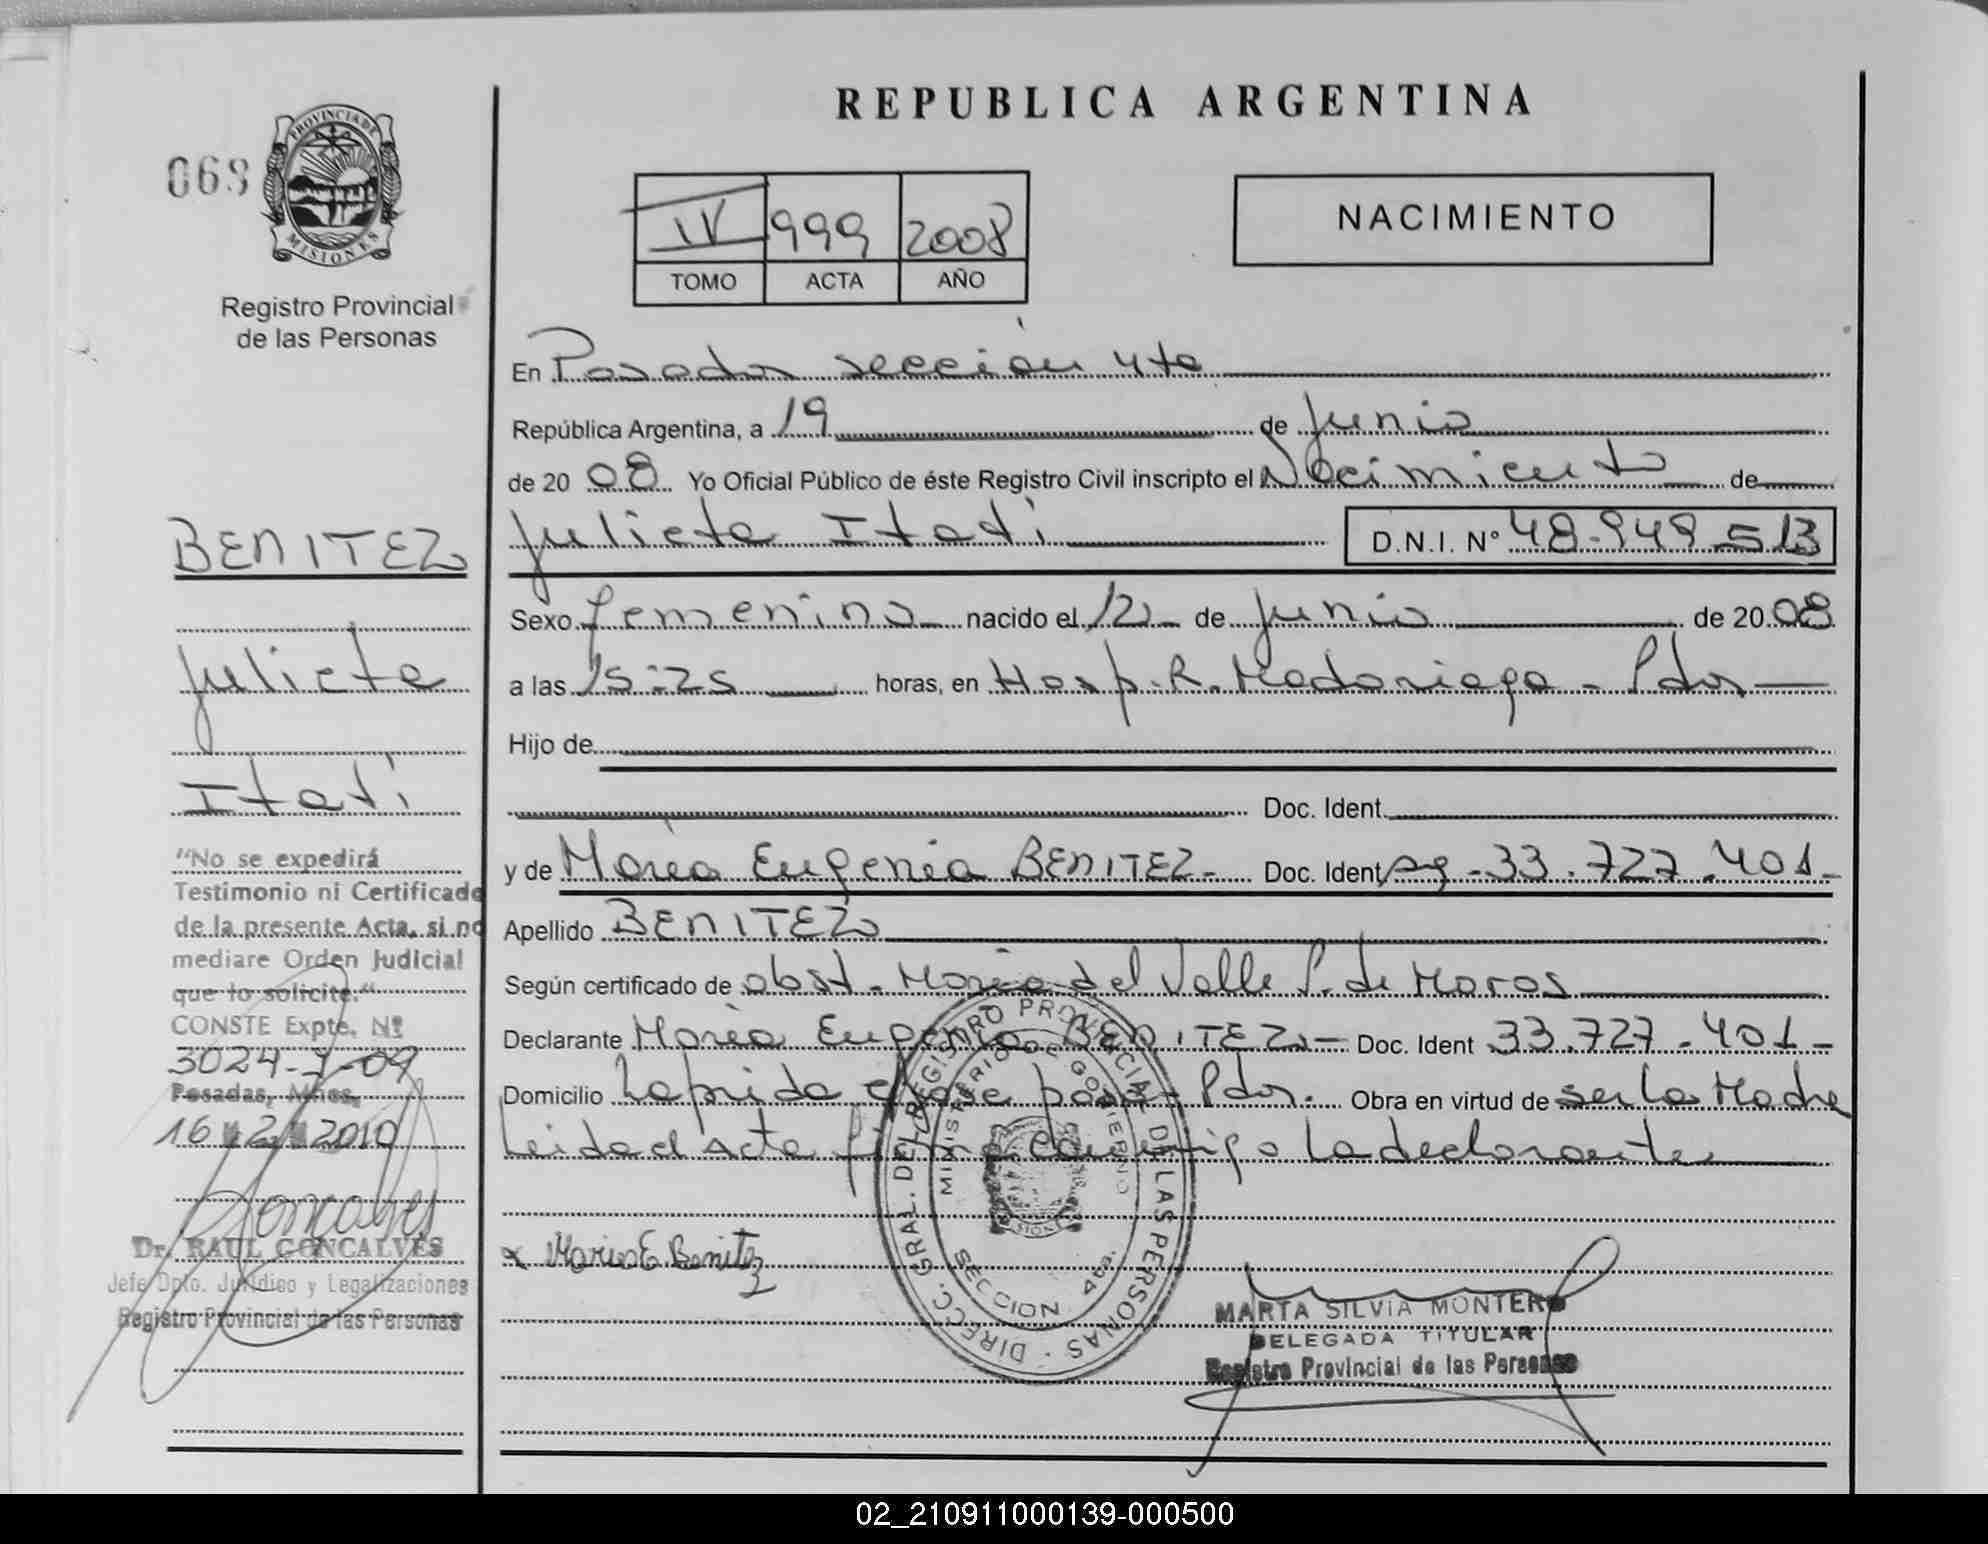 REPUBLICA ARGENTINA
068
PROVINCIA DE
MISIONES
Registro Provincial
de las Personas
IV 999 2008
TOMO ACTA AÑO
NACIMIENTO
En Posadas sección 4ta
República Argentina, a 19 de Junio
de 20 08 Yo Oficial Público de éste Registro Civil inscripto el Nacimiento de
Julieta Itatí D.N.I. N° 48.949.513
Sexo femenino nacido el 12 de Junio de 20 08
a las 15:25 horas, en Hosp. R. Madariaga - Pdas
Hijo de
Doc. Ident.
y de María Eugenia BENITEZ - Doc. Ident 33.727.401-
Apellido BENITEZ
Según certificado de obst. María del Valle P. de Moras
Declarante María Eugenia BENITEZ - Doc. Ident 33.727.401-
Domicilio Laprida Pdas. Obra en virtud de ser la Madre
Leida el Acta firma conmigo la declarante
x Maria E. Benitez
DIRECC. GRAL. DEL REGISTRO PROVINCIAL DE LAS PERSONAS
MINISTERIO DE GOBIERNO
SECCION 4ta.
MARTA SILVIA MONTERO
DELEGADA TITULAR
Registro Provincial de las Personas
BENITEZ
Julieta
Itatí
"No se expedirá
Testimonio ni Certificado
de la presente Acta, si no
mediare Orden Judicial
que lo solicite."
CONSTE Expte. Nº
3024-J-09
Posadas, Mnes,
16 2 2010
Goncalves
Dr. RAUL GONCALVES
Jefe Dpto. Jurídico y Legalizaciones
Registro Provincial de las Personas
02_210911000139-000500